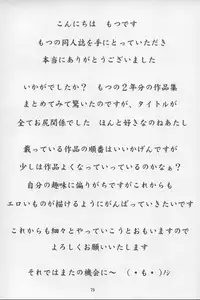 こんにちは　もつです
もつの同人誌を手にとっていただき
本当にありがとうございました
いかがでしたか？　もつの２年分の作品集
まとめてみて驚いたのですが、タイトルが
全てお尻関係でした　ほんと好きなのねあたし
載っている作品の順番はいいかげんですが
少しは作品よくなっていっているのかなぁ？
自分の趣味に偏りがちですがこれからも
エロいものが描けるようにがんばっていきたいです
これからも細々とやっていこうとおもいますので
よろしくお願いいたします
それではまたの機会に～　(・も・)ﾉｼ
78